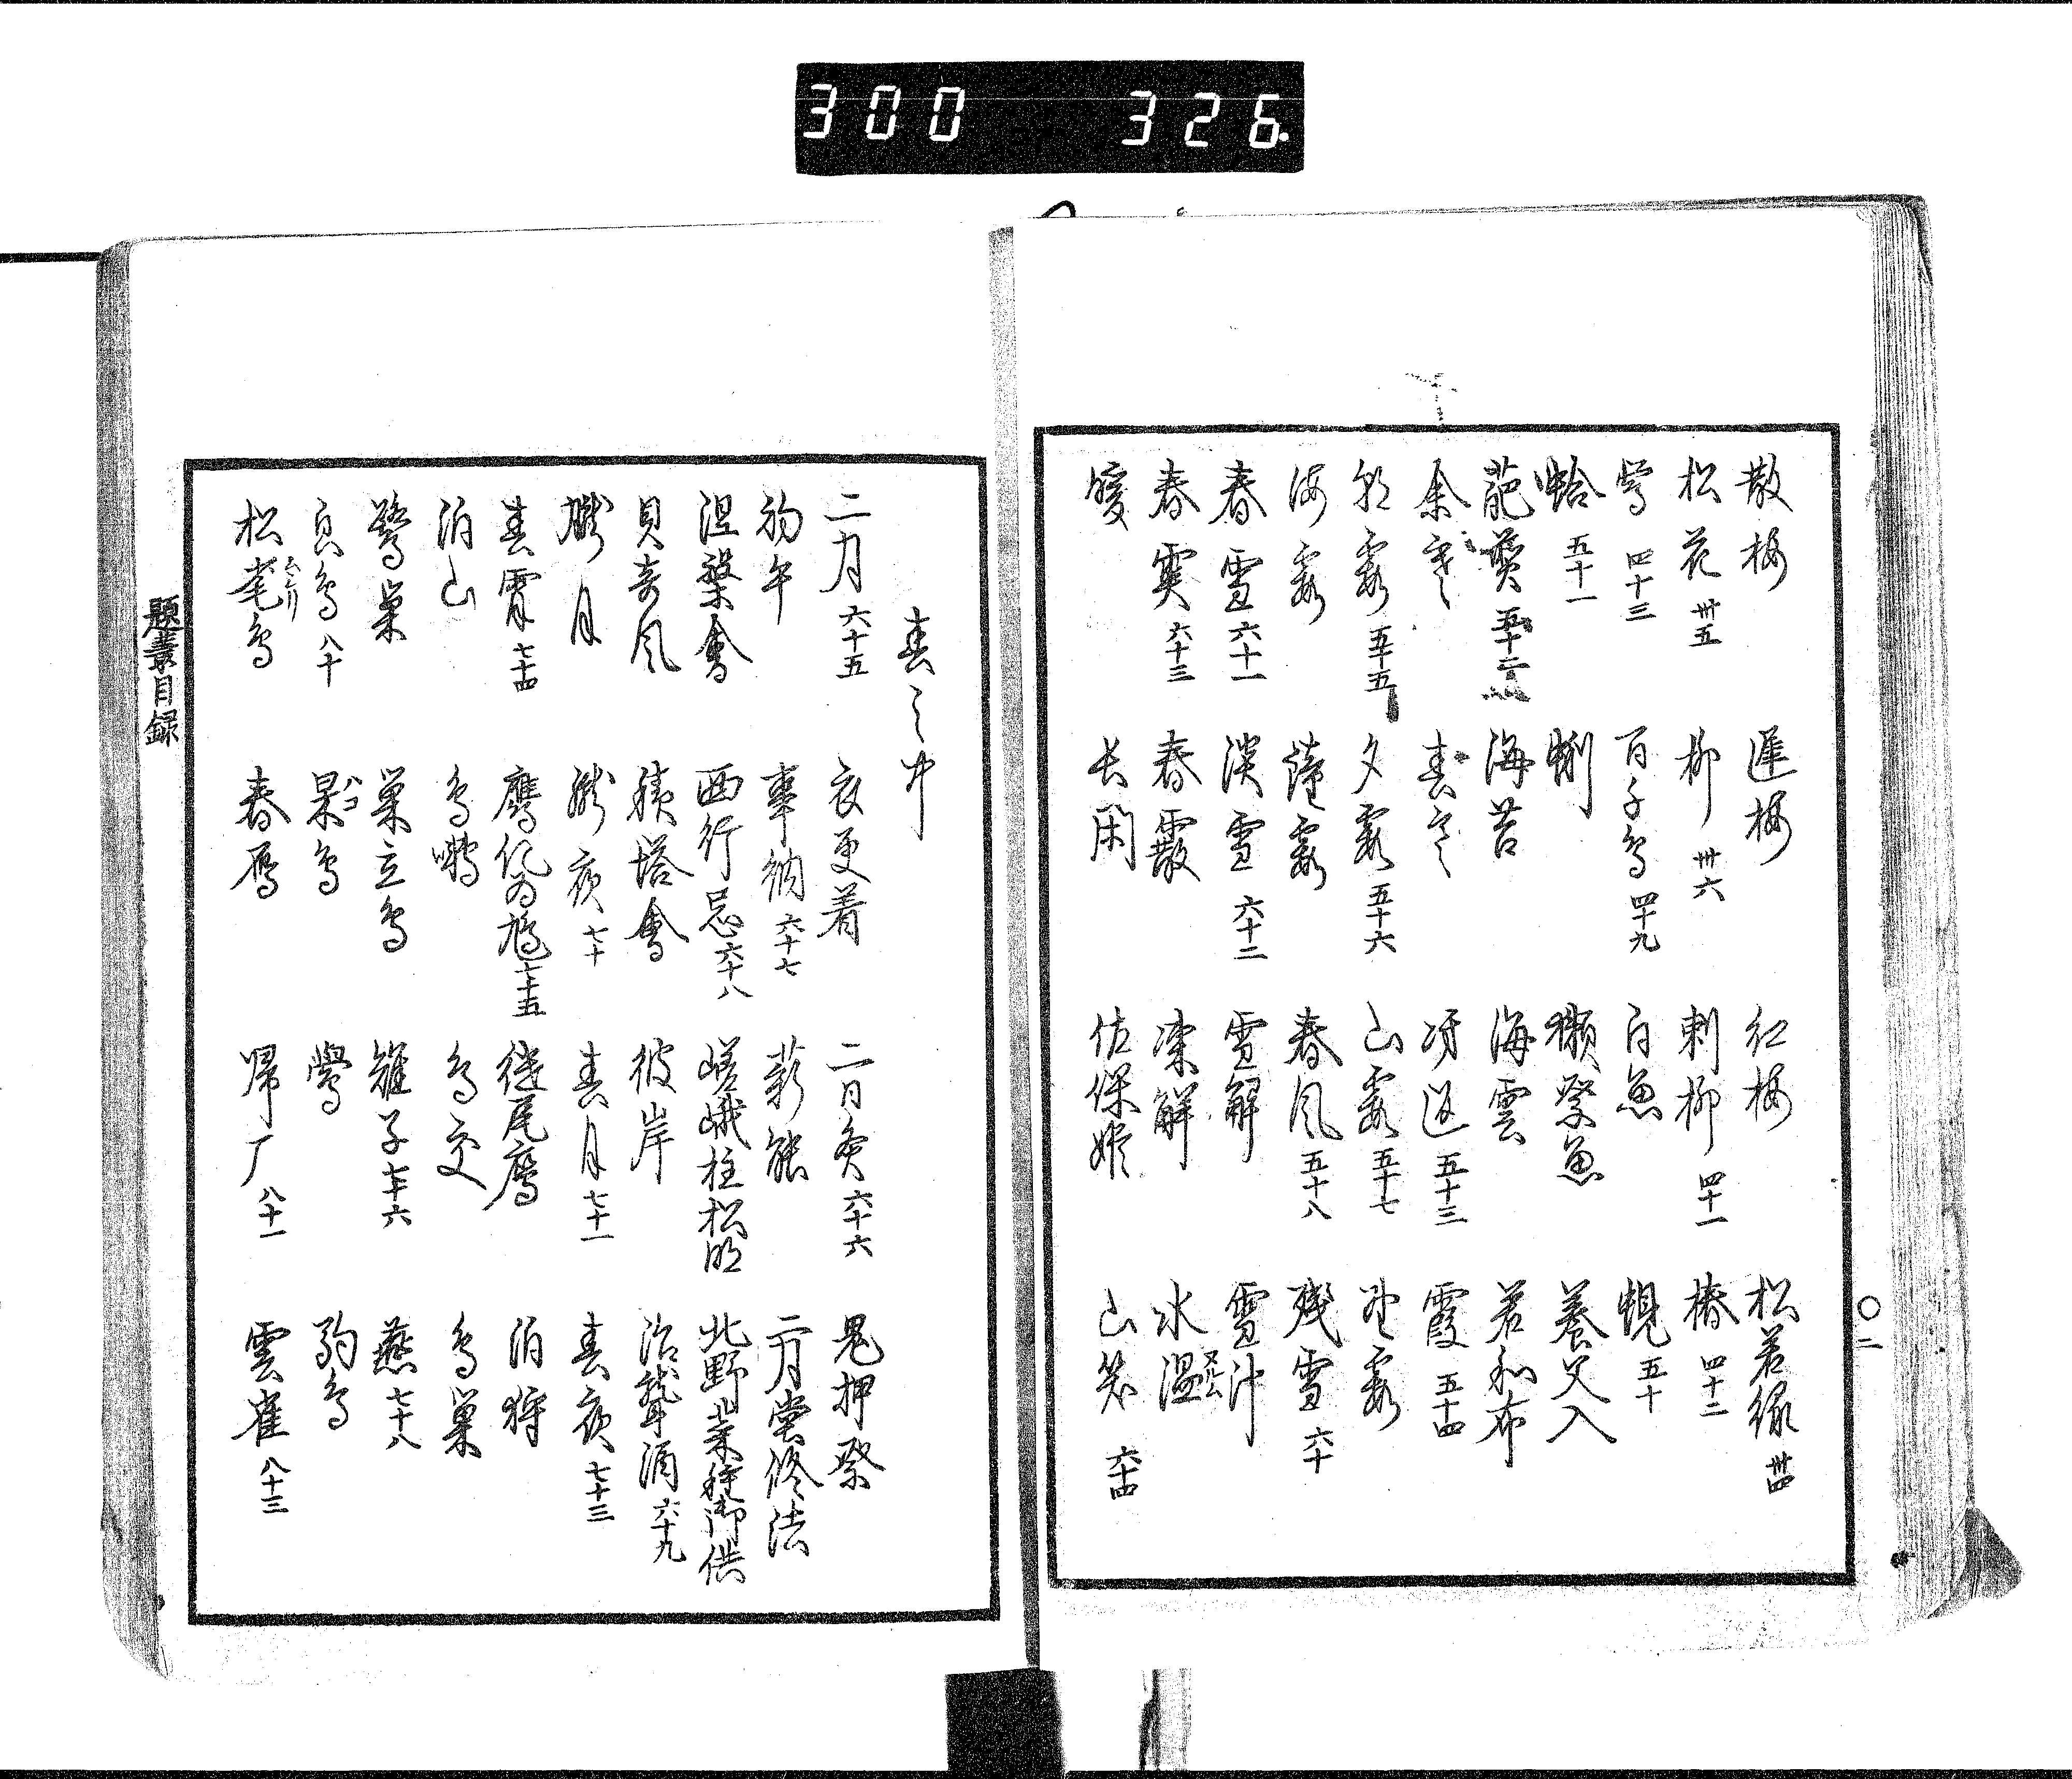 300 326.
散梅 遅梅 紅梅 松若緑 卅四
松花 卅五 柳 卅六 刺柳 四十一 椿 四十二
鶯 四十三 百千鳥 四十九 白魚 蜆 五十
蛤 五十一 蜊 獺祭魚 養父入
海苔 海雲 若和布
余寒 春寒 冴返 五十三 霞 五十四
朝霞 五十五 夕霞 五十六 山霞 五十七 野霞
海霞 遠霞 春風 五十八 残雪 六十
春雪 六十一 淡雪 六十二 雪解 雪汁
春霙 六十三 春霰 凍解 水温 ヌルム
暖 長閑 佐保姫 山笑 六十四
〇二
春之中
二月 六十五 衣更着 二日灸 六十六 鬼押祭
初午 事納 六十七 薪能 二月堂修法
涅槃會 西行忌 六十八 嵯峨柱松明 北野菜種御供
貝寄風 積塔會 彼岸 治聾酒 六十九
朧月 朧夜 七十 春月 七十一 春夜 七十三
春宵 七十四 鷹化為鳩 七十五 継尾鷹 泊狩
泊山 鳥囀 鳥交 鳥巣
鷺巣 巣立鳥 雉子 七十六 燕 七十八
鳥 八十 杲鳥 鷽 駒鳥
松毟鳥 春雁 帰厂 八十一 雲雀 八十三
題叢目録